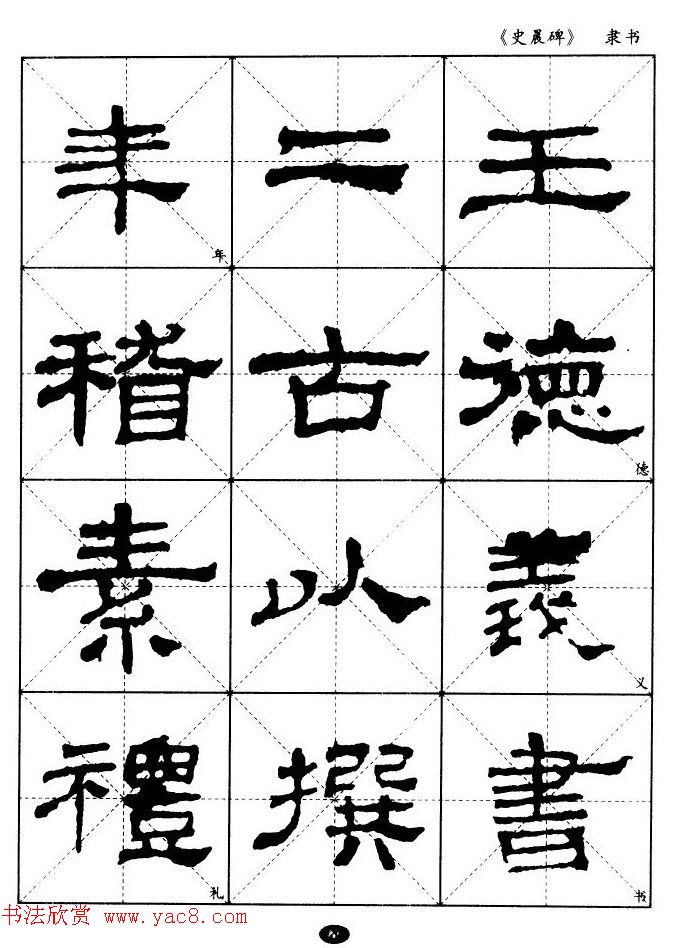 《史晨碑》 隶书
王德義書
德
义
书
二古以撰
年稽素禮
年
礼
书法欣赏 www.yac8.com